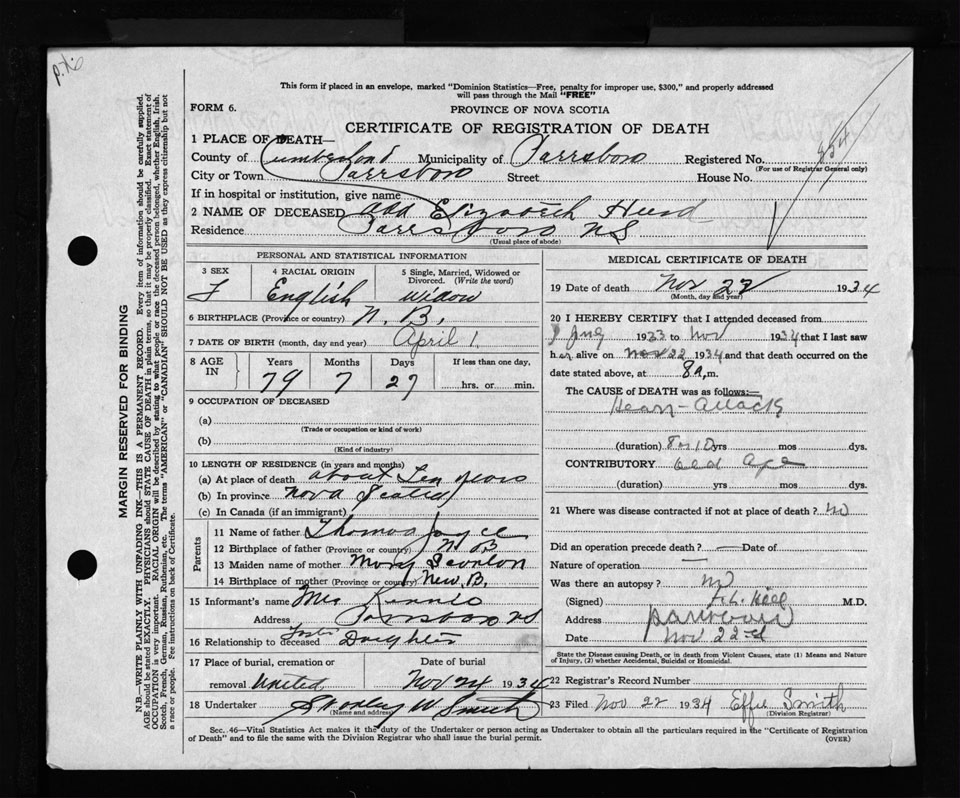 This form if placed in an envelope, marked "Dominion Statistics—Free, penalty for improper use, $300," and properly addressed
will pass through the Mail "FREE"
FORM 6.
PROVINCE OF NOVA SCOTIA
CERTIFICATE OF REGISTRATION OF DEATH
1 PLACE OF DEATH—
County of Cumberland Municipality of Parrsboro Registered No.
(For use of Registrar General only)
City or Town Parrsboro Street House No.
If in hospital or institution, give name
2 NAME OF DECEASED Ada Elizabeth Hurd
Residence Parrsboro NS
(Usual place of abode)
PERSONAL AND STATISTICAL INFORMATION
3 SEX 4 RACIAL ORIGIN 5 Single, Married, Widowed or Divorced. (Write the word)
F English widow
6 BIRTHPLACE (Province or country) N. B.
7 DATE OF BIRTH (month, day and year) April 1
8 AGE IN Years Months Days If less than one day,
79 7 27 hrs. or min.
9 OCCUPATION OF DECEASED
(a)
(Trade or occupation or kind of work)
(b)
(Kind of industry)
10 LENGTH OF RESIDENCE (in years and months)
(a) At place of death about Ten years
(b) In province Nova Scotia
(c) In Canada (if an immigrant)
Parents
11 Name of father Thomas Joyce
12 Birthplace of father (Province or country) N B
13 Maiden name of mother Mary Scanlon
14 Birthplace of mother (Province or country) New B.
15 Informant's name Mrs
Address Parrsboro NS
16 Relationship to deceased Foster Daughter
17 Place of burial, cremation or Date of burial
removal United Nov 24 1934
18 Undertaker Stanley W Smith
(Name and address)
MEDICAL CERTIFICATE OF DEATH
19 Date of death Nov 22 1934
(Month, day and year)
20 I HEREBY CERTIFY that I attended deceased from
1933 to Nov 1934 that I last saw
her alive on Nov 22 1934 and that death occurred on the
date stated above, at 8 a. m.
The CAUSE OF DEATH was as follows:—
Heart attack
(duration) yrs mos dys.
CONTRIBUTORY old Age
(duration) yrs mos dys.
21 Where was disease contracted if not at place of death? no
Did an operation precede death? — Date of
Nature of operation —
Was there an autopsy? no
(Signed) M.D.
Address Parrsboro
Date Nov 22nd
State the Disease causing Death, or in death from Violent Causes, state (1) Means and Nature
of Injury, (2) whether Accidental, Suicidal or Homicidal.
22 Registrar's Record Number
23 Filed Nov 22 1934 Effie Smith
(Division Registrar)
Sec. 46—Vital Statistics Act makes it the duty of the Undertaker or person acting as Undertaker to obtain all the particulars required in the "Certificate of Registration
of Death" and to file the same with the Division Registrar who shall issue the burial permit. (OVER)
MARGIN RESERVED FOR BINDING
N.B.—WRITE PLAINLY WITH UNFADING INK—THIS IS A PERMANENT RECORD. Every item of information should be carefully supplied.
AGE should be stated EXACTLY. PHYSICIANS should STATE CAUSE OF DEATH in plain terms, so that it may be properly classified. Exact statement of
OCCUPATION is very important. RACIAL ORIGIN will be described by stating to what people or race the deceased person belonged, whether English, Irish,
Scotch, French, German, Russian, Ruthenian, etc. The terms "AMERICAN" or "CANADIAN" SHOULD NOT BE USED as they express citizenship but not
a race or people. Fee instructions on back of Certificate.